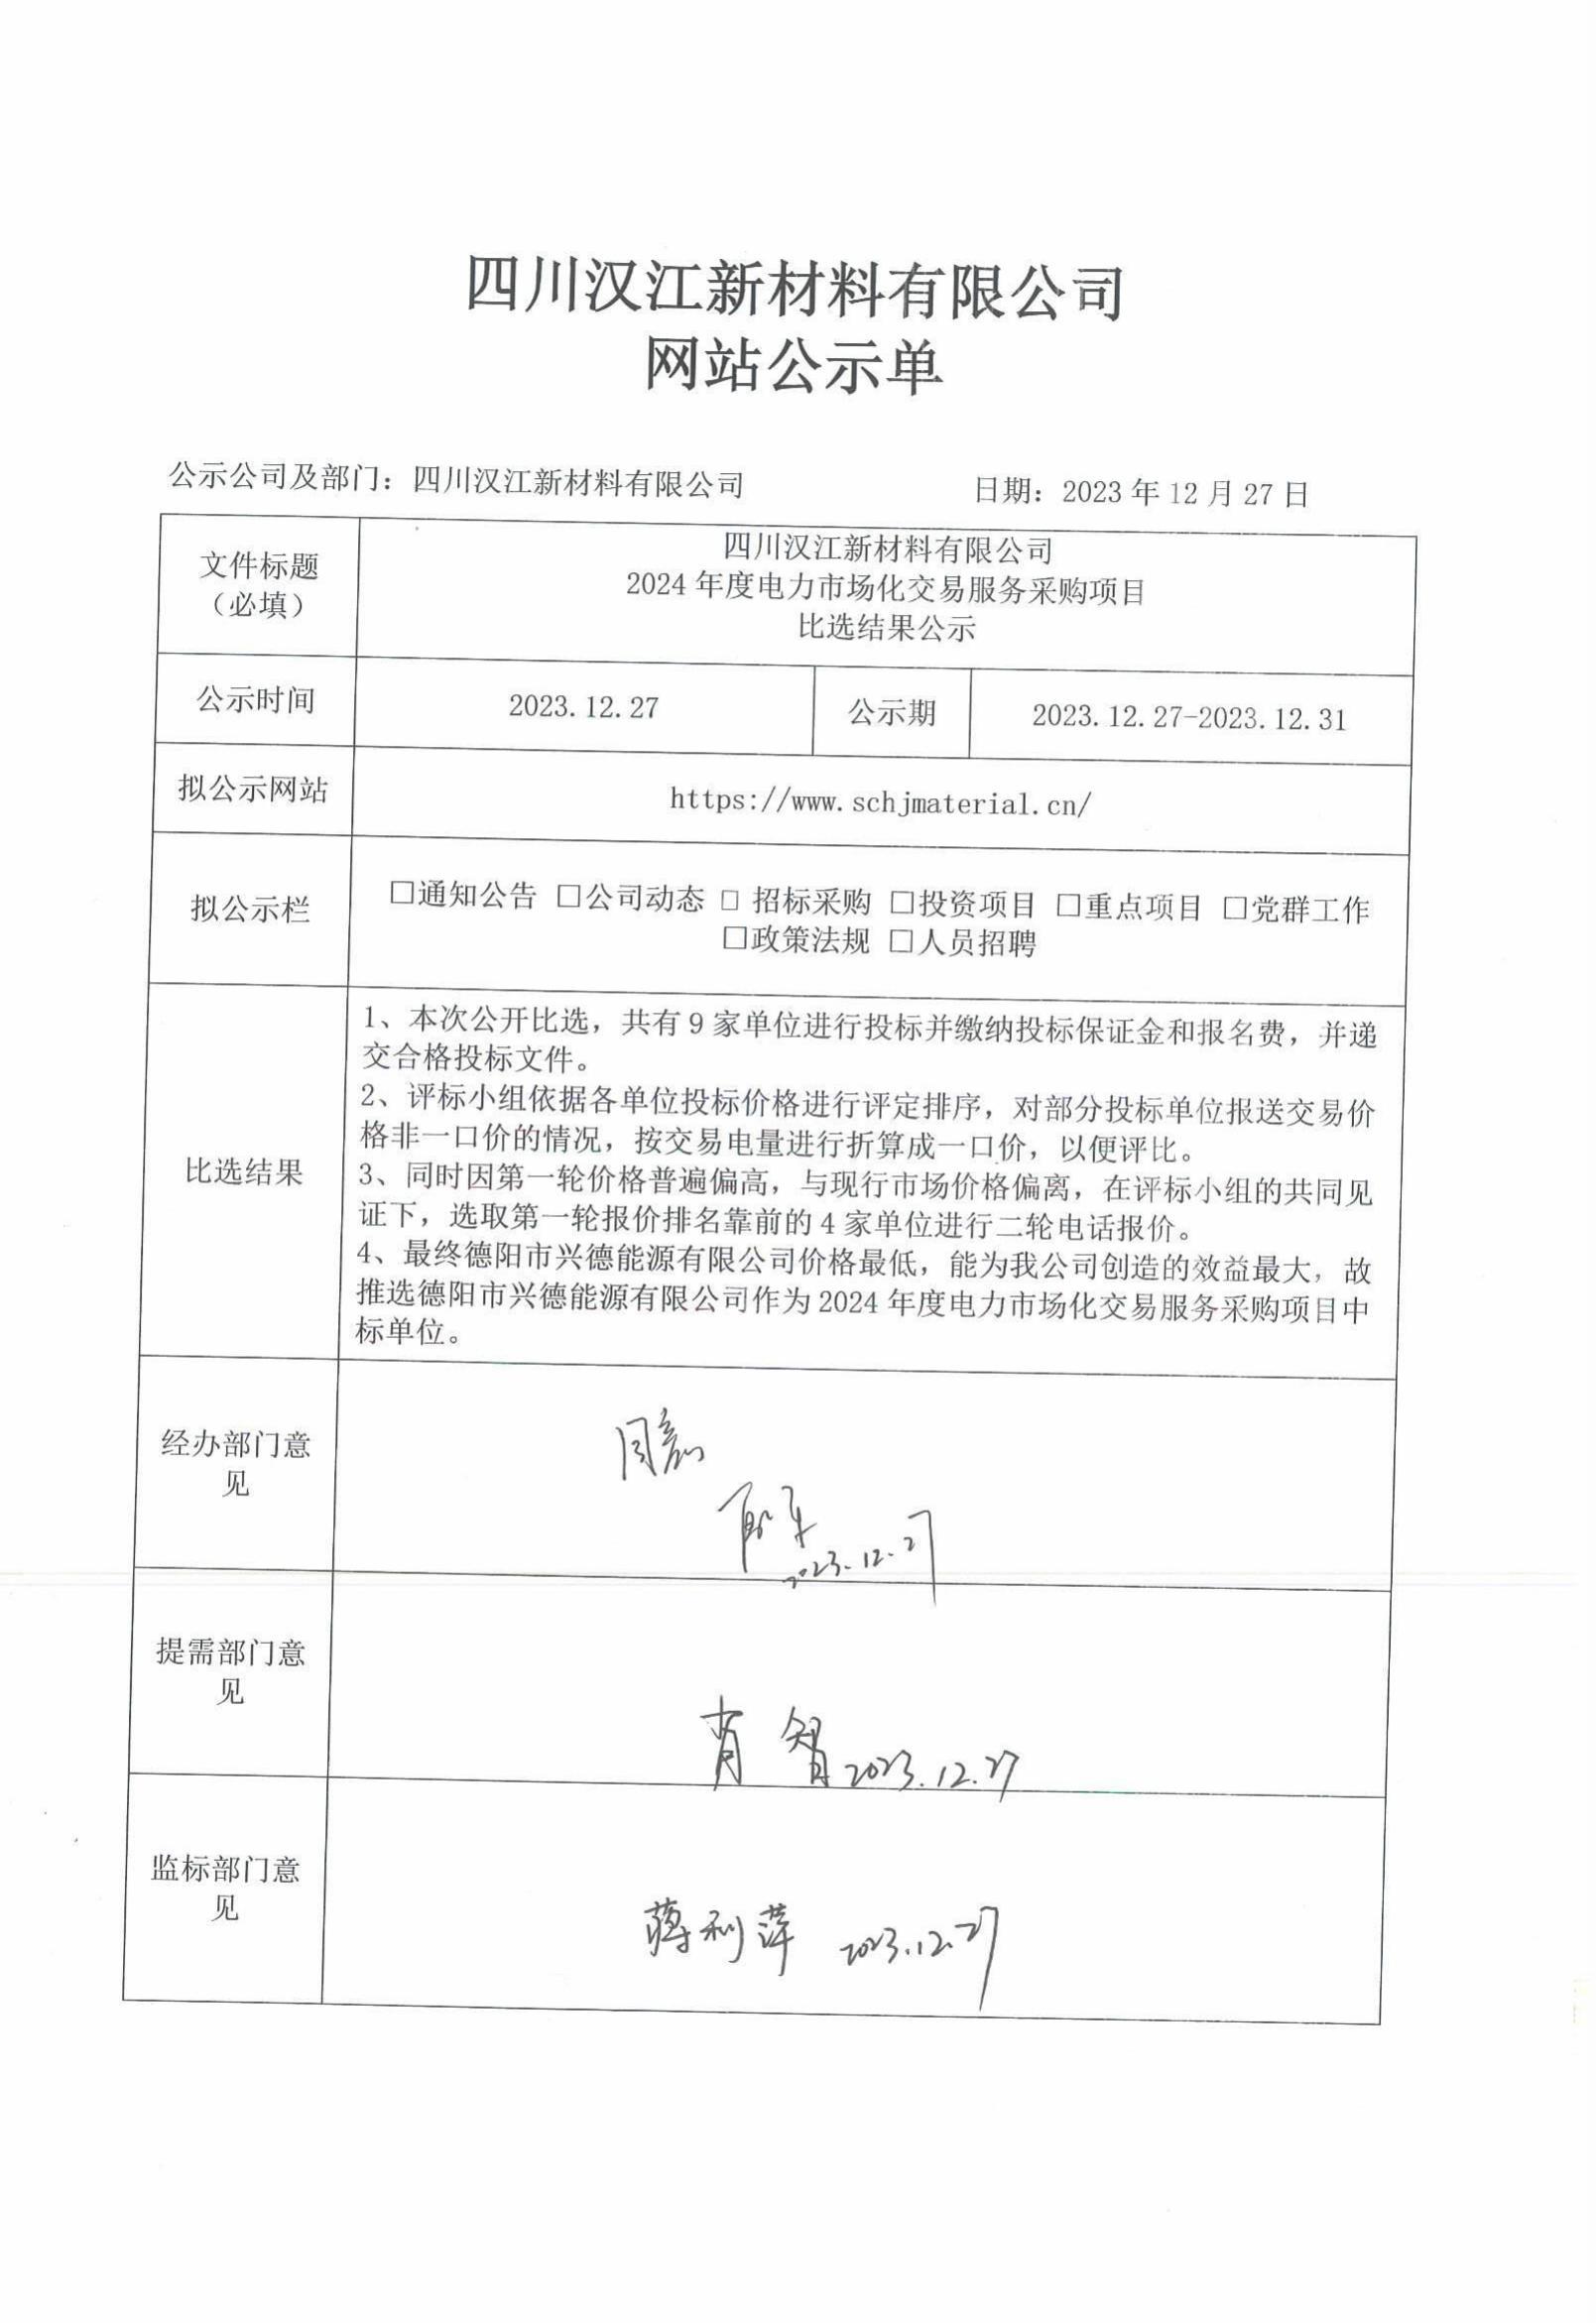 四川汉江新材料有限公司
网站公示单
公示公司及部门：四川汉江新材料有限公司 日期：2023 年 12 月 27 日
文件标题
（必填）
四川汉江新材料有限公司
2024 年度电力市场化交易服务采购项目
比选结果公示
公示时间 2023.12.27 公示期 2023.12.27-2023.12.31
拟公示网站 https://www.schjmaterial.cn/
拟公示栏
□通知公告 □公司动态 □ 招标采购 □投资项目 □重点项目 □党群工作
□政策法规 □人员招聘
比选结果
1、本次公开比选，共有 9 家单位进行投标并缴纳投标保证金和报名费，并递
交合格投标文件。
2、评标小组依据各单位投标价格进行评定排序，对部分投标单位报送交易价
格非一口价的情况，按交易电量进行折算成一口价，以便评比。
3、同时因第一轮价格普遍偏高，与现行市场价格偏离，在评标小组的共同见
证下，选取第一轮报价排名靠前的 4 家单位进行二轮电话报价。
4、最终德阳市兴德能源有限公司价格最低，能为我公司创造的效益最大，故
推选德阳市兴德能源有限公司作为 2024 年度电力市场化交易服务采购项目中
标单位。
经办部门意
见
同意
2023.12.27
提需部门意
见
肖智 2023.12.27
监标部门意
见
蒋利萍 2023.12.27